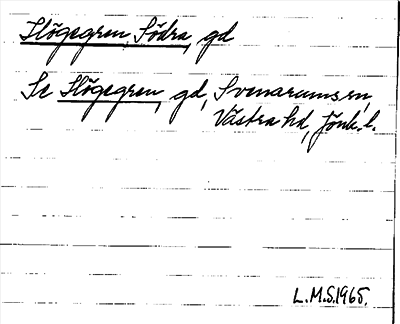 Högegren, Södra, gd
Se Högegren, gd, Svenarums sn,
Västra hd, Jönk. l.
L.M.S. 1965.